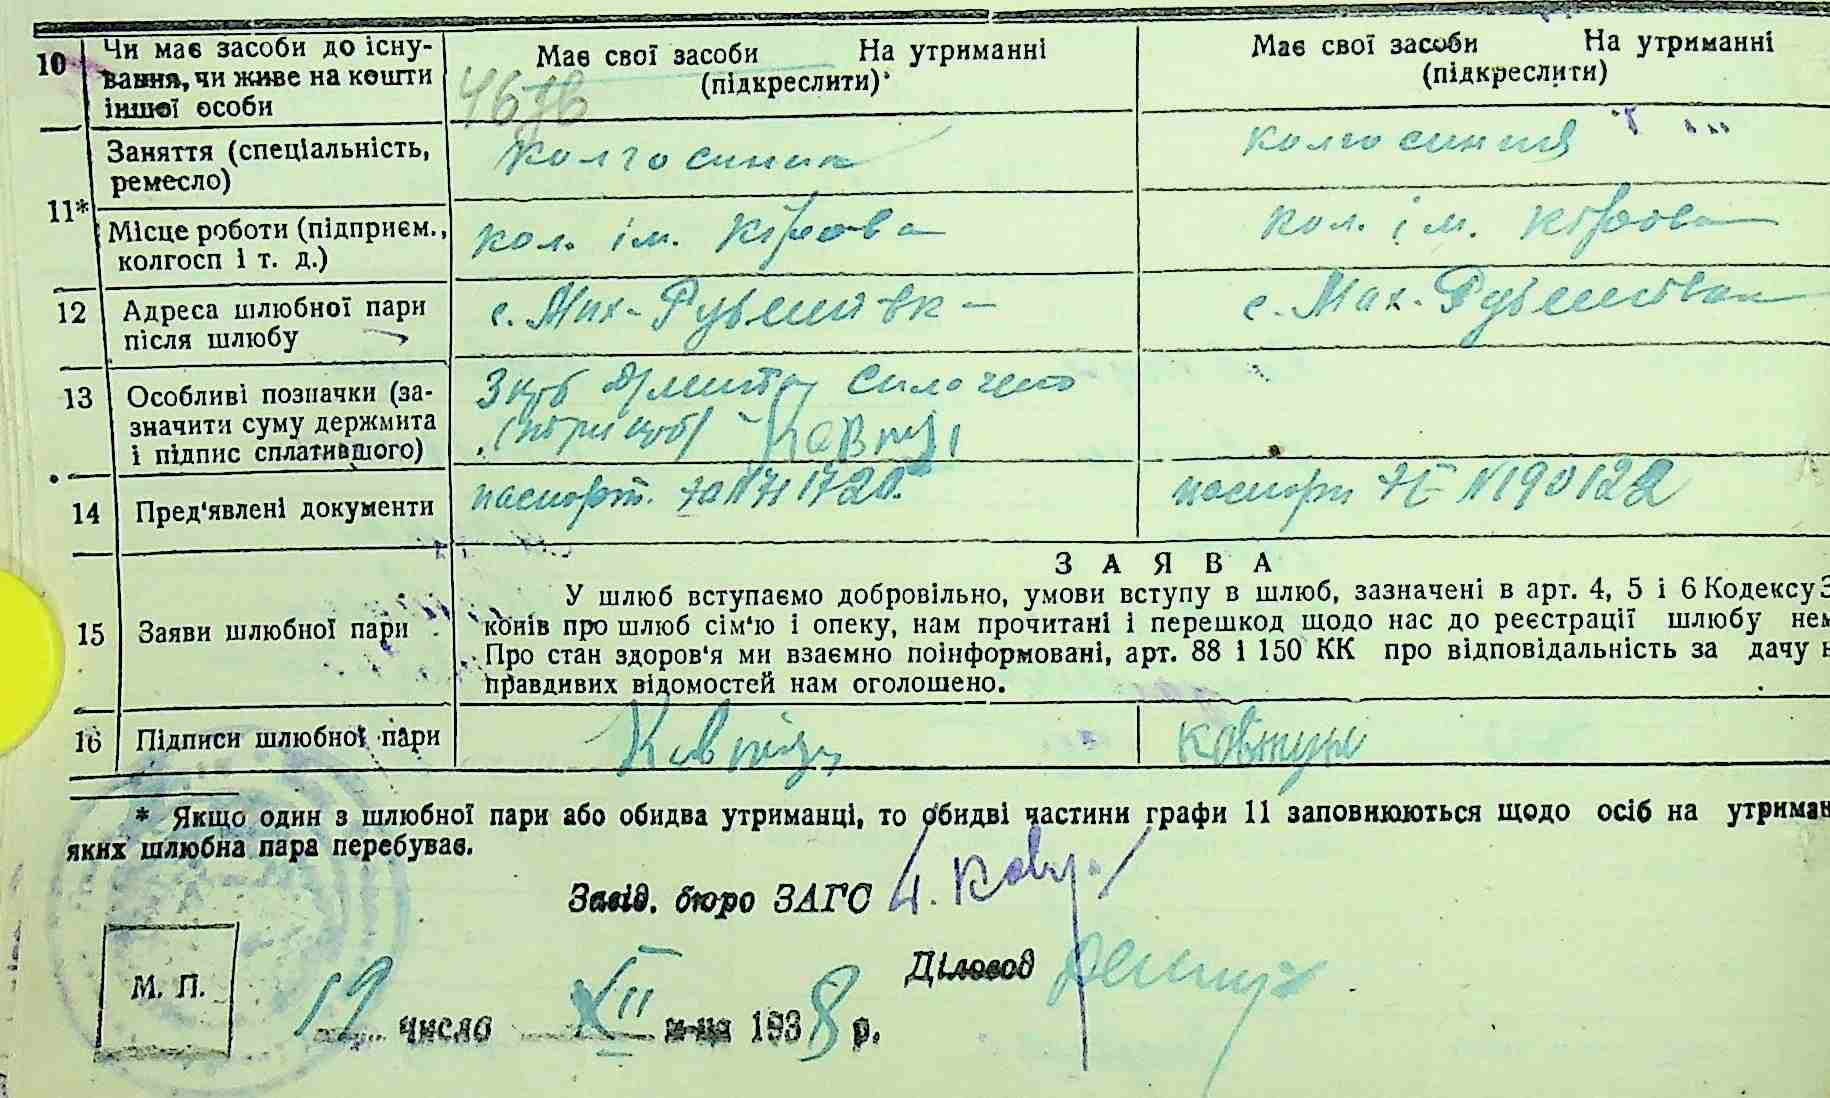 10 Чи має засоби до існування, чи живе на кошти іншої особи
Має свої засоби На утриманні
(підкреслити)
Має свої засоби На утриманні
(підкреслити)
11*
Заняття (спеціальність, ремесло)
колгоспник
колгоспниця
Місце роботи (підприєм., колгосп і т. д.)
кол. ім. Кірова
кол. ім. Кірова
12 Адреса шлюбної пари після шлюбу
с. Мих-
с. Мах-
13 Особливі позначки (зазначити суму держмита і підпис сплатившого)
3 крб держмита сплачено
(три крб) Ковтун
14 Пред'явлені документи
паспорт
паспорт N 190122
15 Заяви шлюбної пари
ЗАЯВА
У шлюб вступаємо добровільно, умови вступу в шлюб, зазначені в арт. 4, 5 і 6 Кодексу З
конів про шлюб сім'ю і опеку, нам прочитані і перешкод щодо нас до реєстрації шлюбу нем
Про стан здоров'я ми взаємно поінформовані, арт. 88 і 150 КК про відповідальність за дачу н
правдивих відомостей нам оголошено.
16 Підписи шлюбної пари
Ковтун
Ковтун
* Якщо один з шлюбної пари або обидва утриманці, то обидві частини графи 11 заповнюються щодо осіб на утриман
яких шлюбна пара перебуває.
Завід. бюро ЗАГС
Діловод
М. П.
19 число XII м-ця 1938 р.